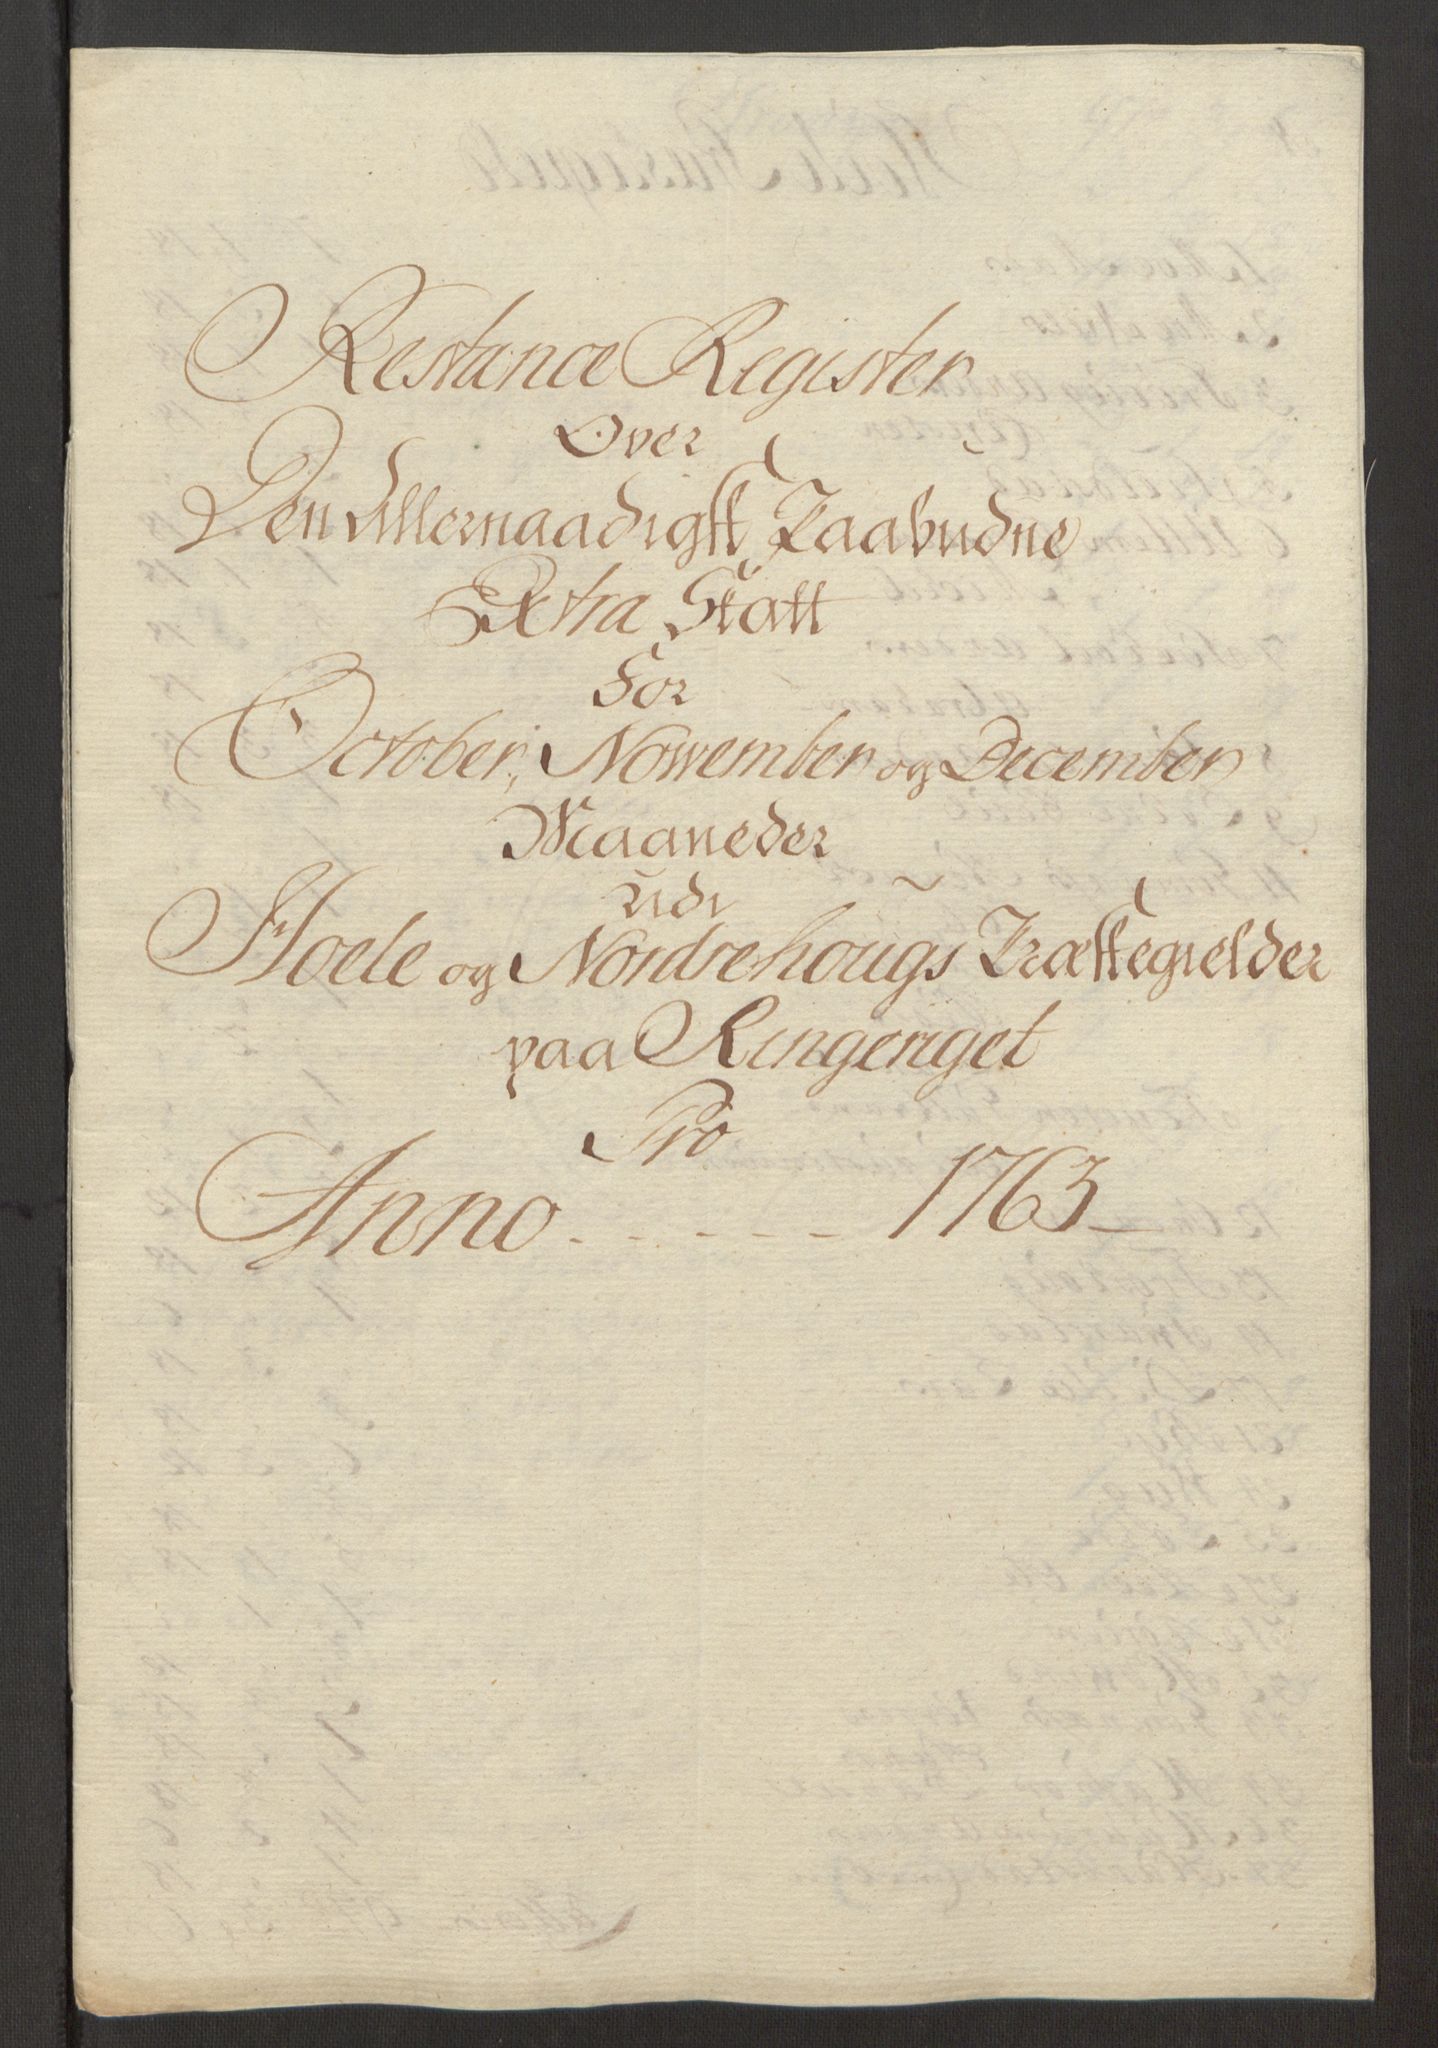 Restance Register
Over
Den Allernaadigst Paabudne
Extra Skatt
For
October, Nowember og December
Maaneder
udi
Hoele og Nordrehougs Præstegielder
paa Ringeriget
Pro
Anno - - - - - 1763